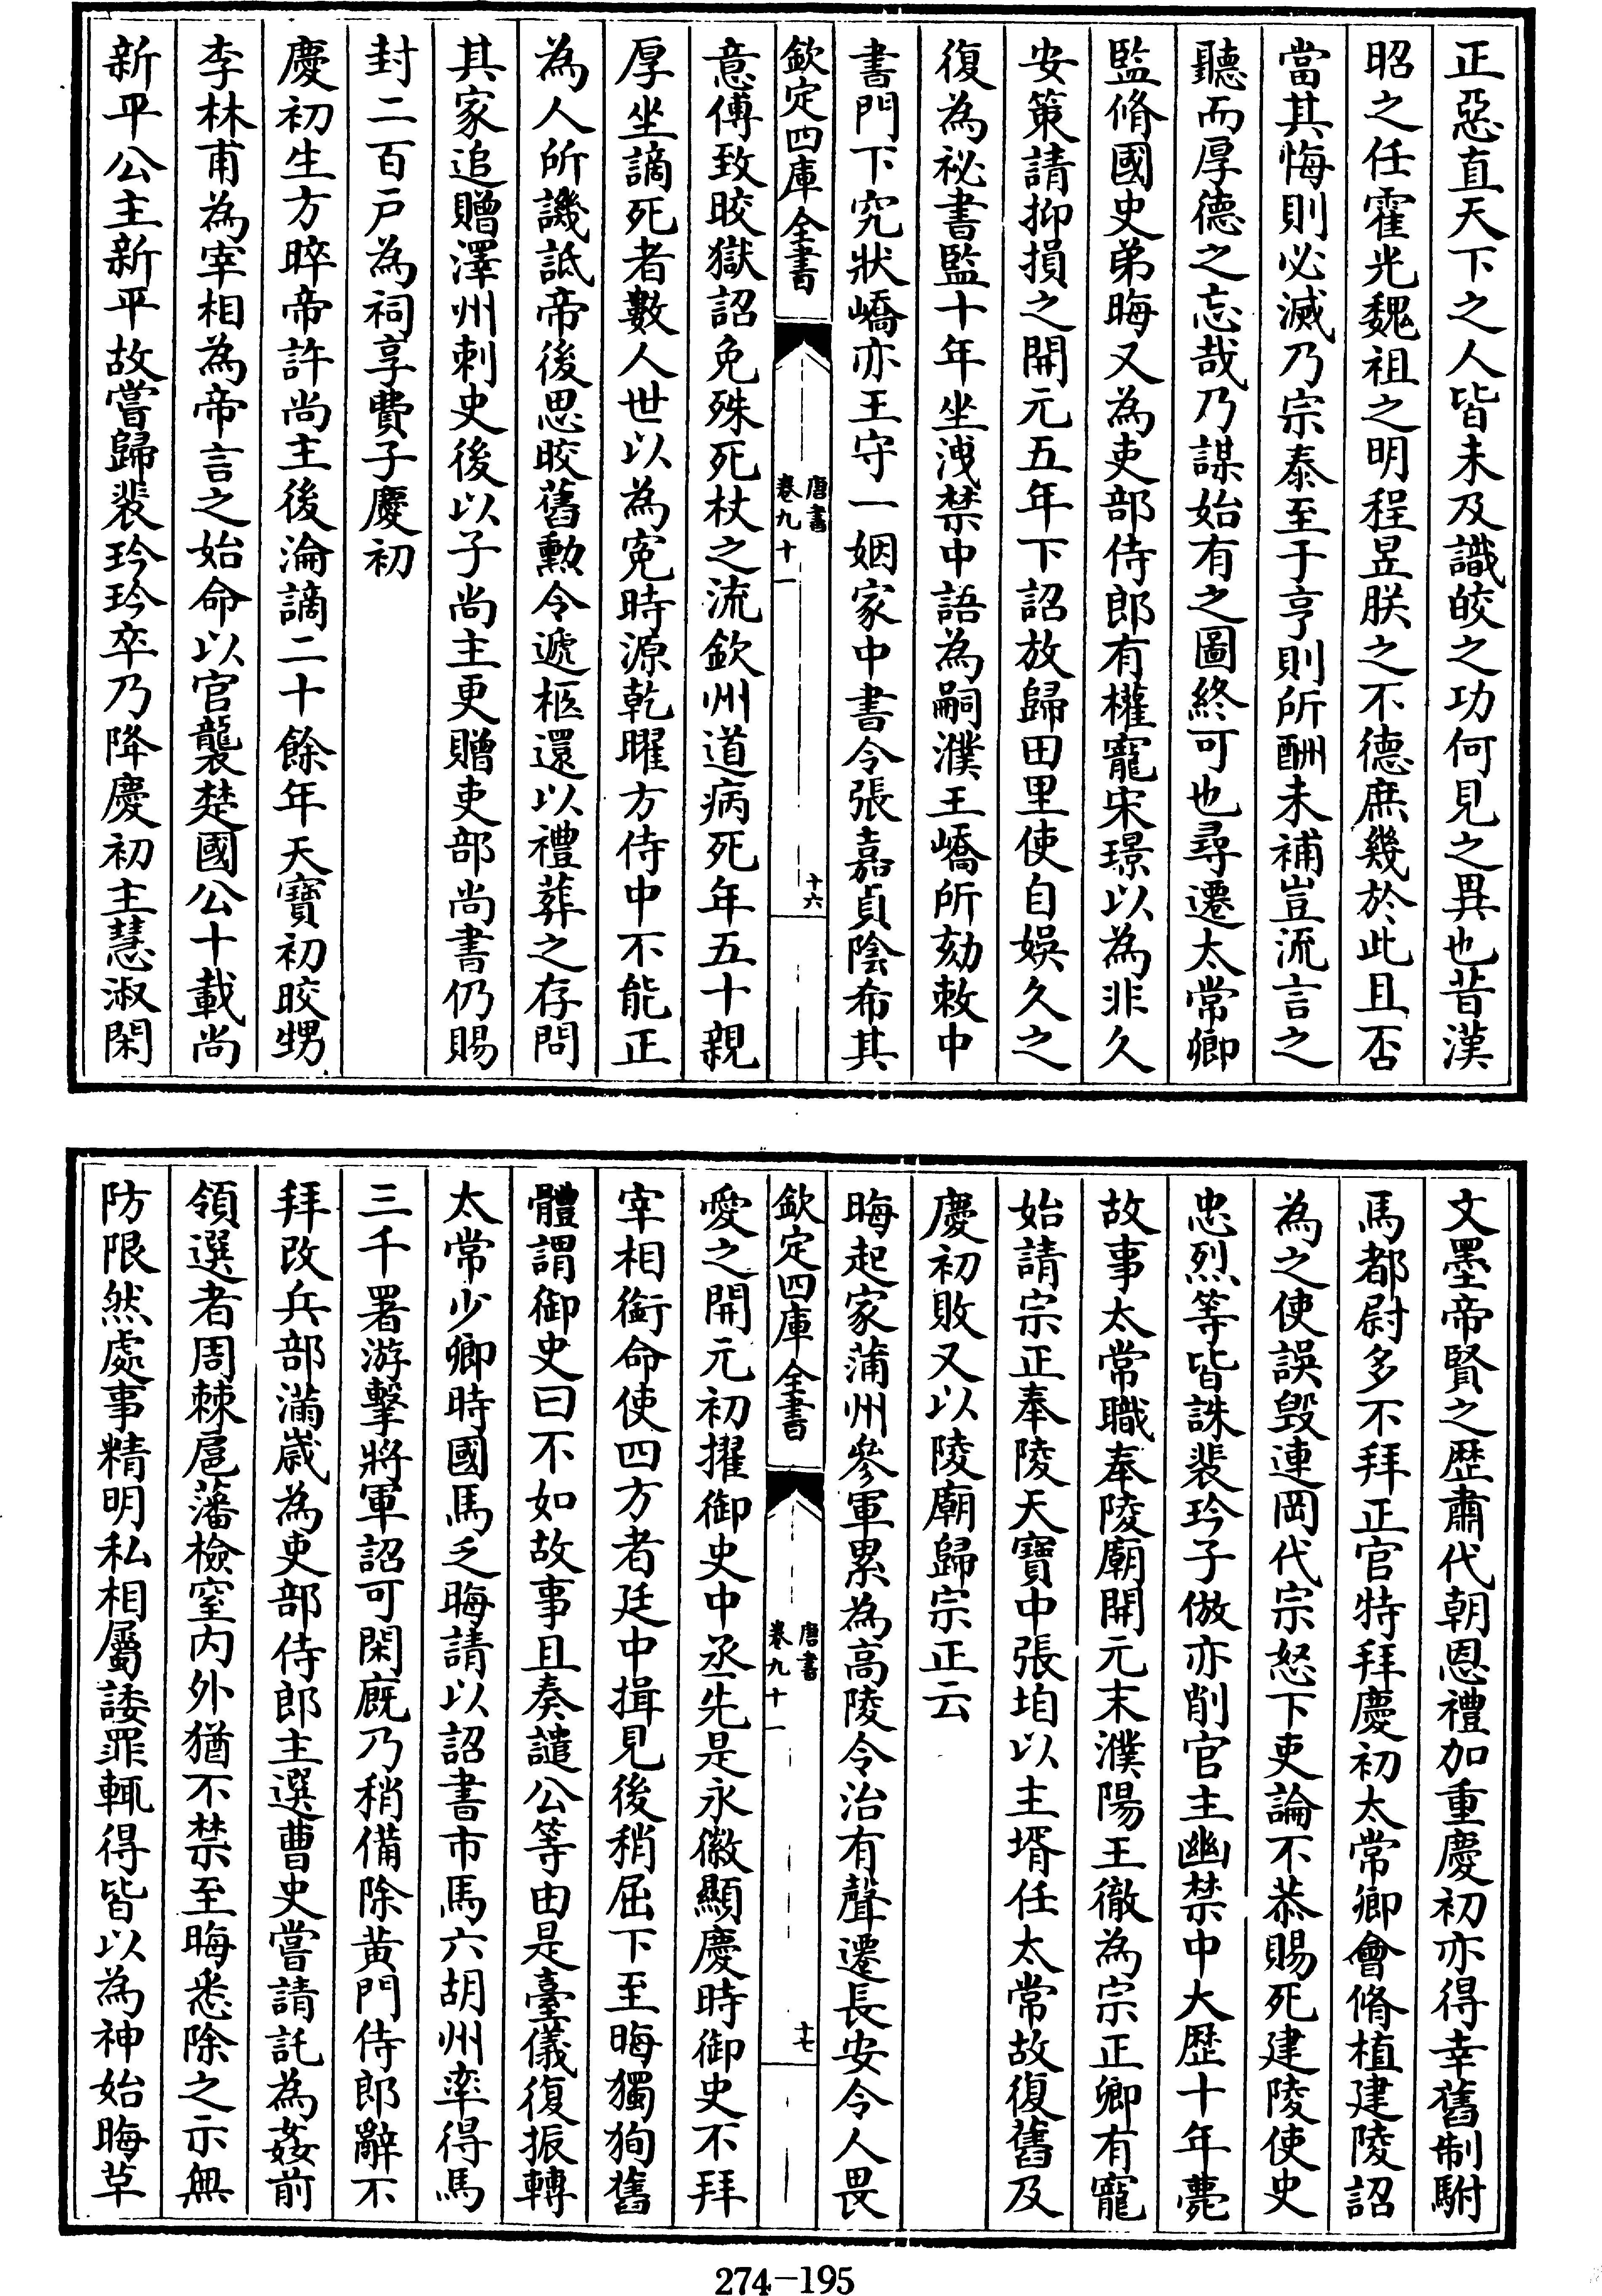 正惡直天下之人皆未及識皎之功何見之異也昔漢
昭之任霍光魏祖之明程昱朕之不德庶幾於此且否
當其悔則必滅乃宗泰至于亨則所酬未補豈流言之
聽而厚德之忘哉乃謀始有之圖終可也尋遷太常卿
監脩國史弟晦又為吏部侍郎有權寵宋璟以為非久
安策請抑損之開元五年下詔放歸田里使自娛久之
復為祕書監十年坐洩禁中語為嗣濮王嶠所劾敕中
書門下究狀嶠亦王守一姻家中書令張嘉貞陰希其
欽定四庫全書
唐書
卷九十一
十六
意傅致晈獄詔免殊死杖之流欽州道病死年五十親
厚坐謫死者數人世以為寃時源乾曜方侍中不能正
為人所譏詆帝後思晈舊勲令遞柩還以禮葬之存問
其家追贈澤州刺史後以子尚主更贈吏部尚書仍賜
封二百戸為祠享費子慶初
慶初生方晬帝許尚主後淪謫二十餘年天寶初晈甥
李林甫為宰相為帝言之始命以官襲楚國公十載尚
新平公主新平故嘗歸裴玪玪卒乃降慶初主慧淑閑
文墨帝賢之歴肅代朝恩禮加重慶初亦得幸舊制駙
馬都尉多不拜正官特拜慶初太常卿會脩植建陵詔
為之使誤毁連岡代宗怒下吏論不恭賜死建陵使史
忠烈等皆誅裴玪子倣亦削官主幽禁中大歴十年薨
故事太常職奉陵廟開元末濮陽王徹為宗正卿有寵
始請宗正奉陵天寶中張垍以主壻任太常故復舊及
慶初敗又以陵廟歸宗正云
晦起家蒲州參軍累為高陵令治有聲遷長安令人畏
欽定四庫全書
唐書
卷九十一
十七
愛之開元初擢御史中丞先是永徽顯慶時御史不拜
宰相銜命使四方者廷中揖見後稍屈下至晦獨徇舊
體謂御史曰不如故事且奏譴公等由是臺儀復振轉
太常少卿時國馬乏晦請以詔書市馬六胡州率得馬
三千署游擊將軍詔可閑廐乃稍備除黄門侍郎辭不
拜改兵部滿歲為吏部侍郎主選曹史嘗請託為姦前
領選者周棘扈藩檢窒内外猶不禁至晦悉除之示無
防限然處事精明私相屬諉罪輒得皆以為神始晦草
274-195